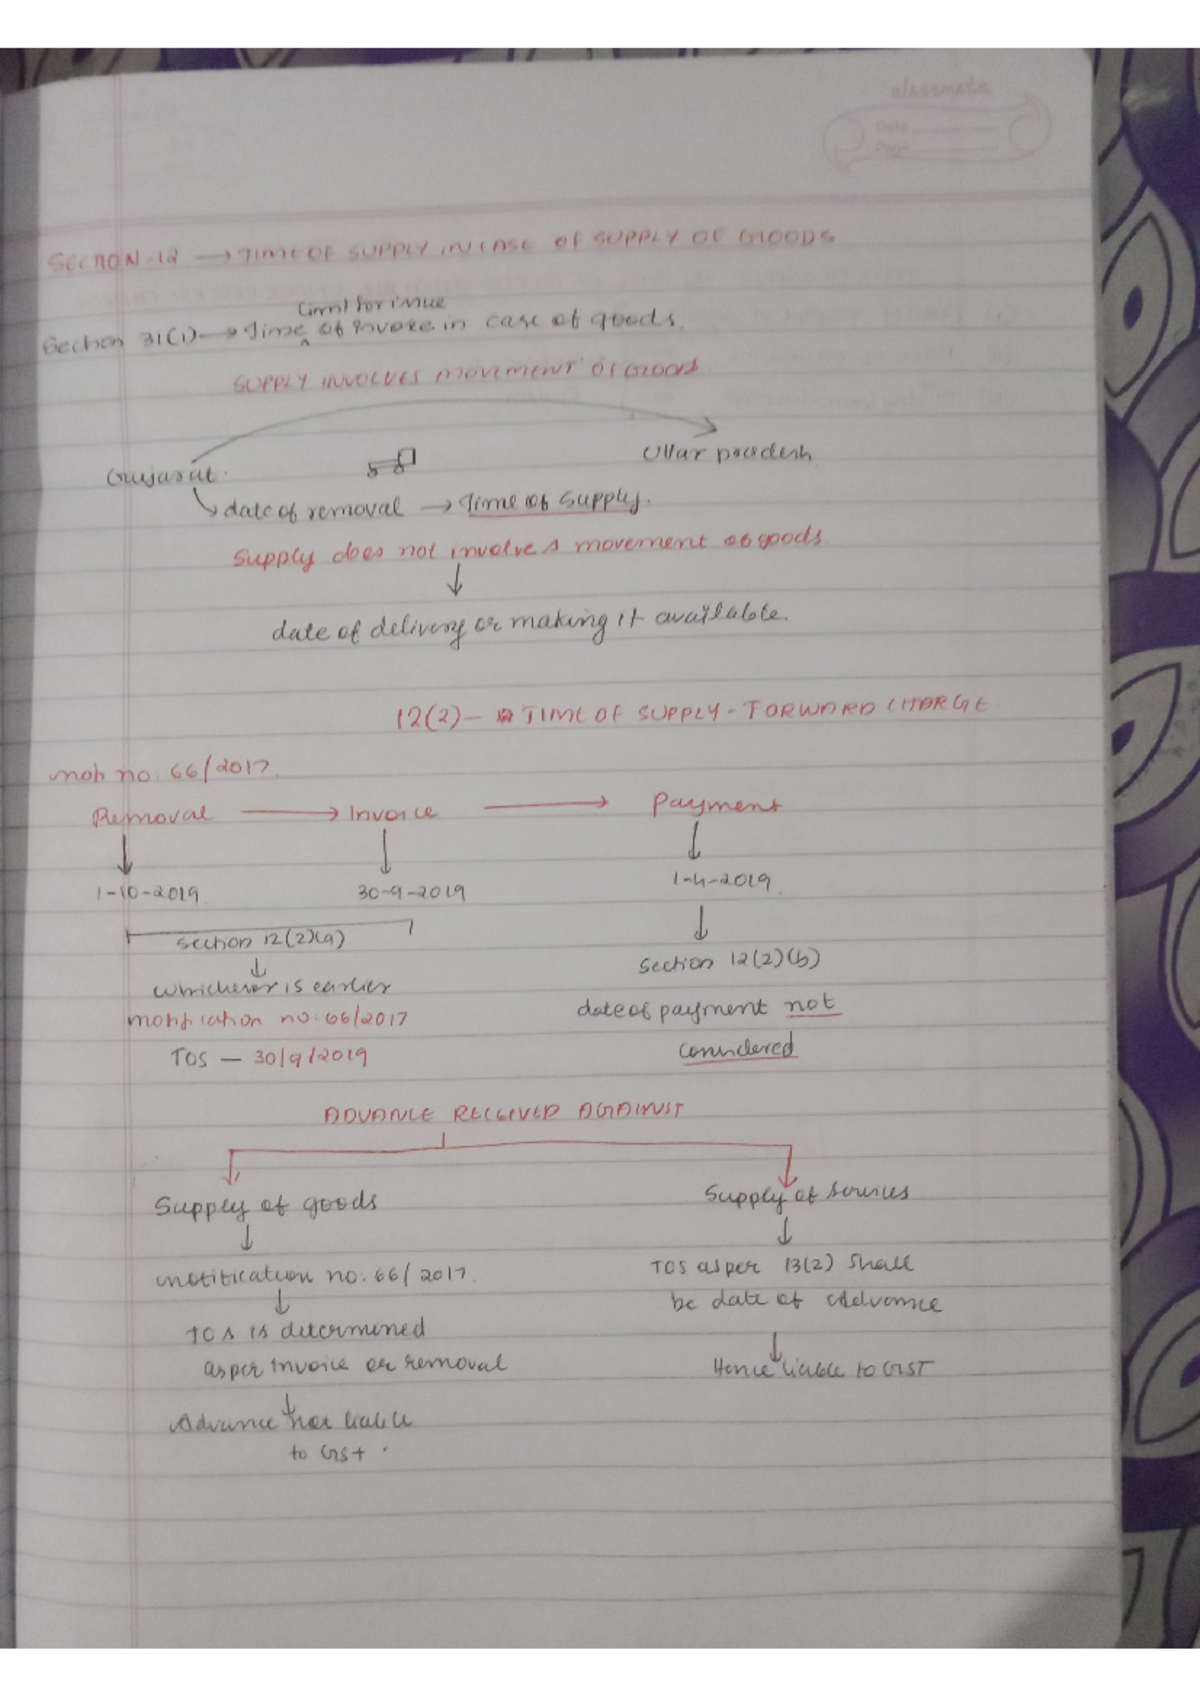 classmate
Date
Page
SECTION-12 → TIME OF SUPPLY IN CASE OF SUPPLY OF GOODS
limit for issue
Section 31(1) → Time ^ of invoice in case of goods.
SUPPLY INVOLVES MOVEMENT OF GOODS
Gujarat. Uttar pradesh
↳ date of removal → Time of supply.
Supply does not involves movement of goods
↓
date of delivery or making it available.
12(2) - TIME OF SUPPLY - FORWARD CHARGE
noti no. 66/2017.
Removal → Invoice → Payment
↓ ↓ ↓
1-10-2019 30-9-2019 1-4-2019
Section 12(2)(a) ↓
↓ Section 12(2)(b)
whichever is earlier date of payment not
notification no. 66/2017 considered
TOS — 30/9/2019
ADVANCE RECEIVED AGAINST
Supply of goods Supply of services
↓ ↓
notification no. 66/2017. TOS as per 13(2) shall
↓ be date of Advance
TOS is determined ↓
as per invoice or removal Hence liable to GST
↓
Advance not liable
to GST.